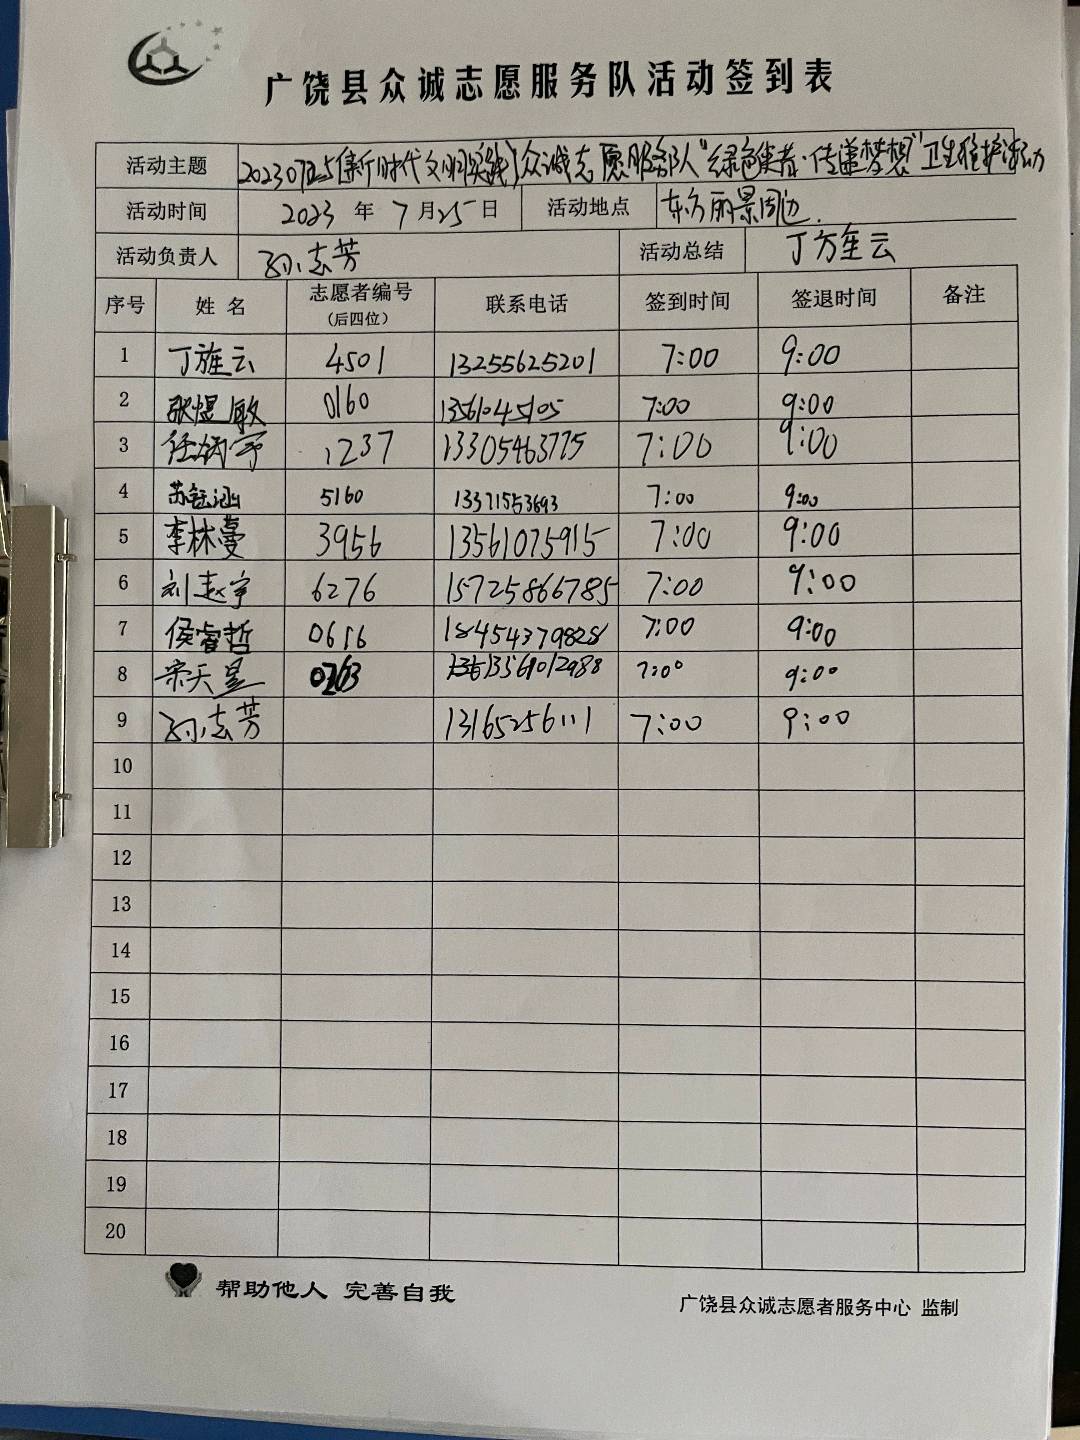 广饶县众诚志愿服务队活动签到表
活动主题 20230725【新时代文明实践】众诚志愿服务队“绿色使者·传递梦想”卫生维护活动
活动时间 2023 年 7 月 25 日 活动地点 东方丽景周边.
活动负责人 孙志芳 活动总结 丁旌云
序号 姓名 志愿者编号 (后四位) 联系电话 签到时间 签退时间 备注
1 丁旌云 4501 13255625201 7:00 9:00
2 张煜敏 0160 13561045105 7:00 9:00
3 任炳宇 1237 13305463775 7:00 9:00
4 苏钰涵 5160 13371553693 7:00 9:00
5 李林蔓 3956 13561075915 7:00 9:00
6 刘赵宇 6276 15725866785 7:00 9:00
7 侯睿哲 0616 18454379828 7:00 9:00
8 宋天昱 0263 13561012988 7:00 9:00
9 孙志芳 13165256111 7:00 9:00
10
11
12
13
14
15
16
17
18
19
20
帮助他人 完善自我
广饶县众诚志愿者服务中心 监制